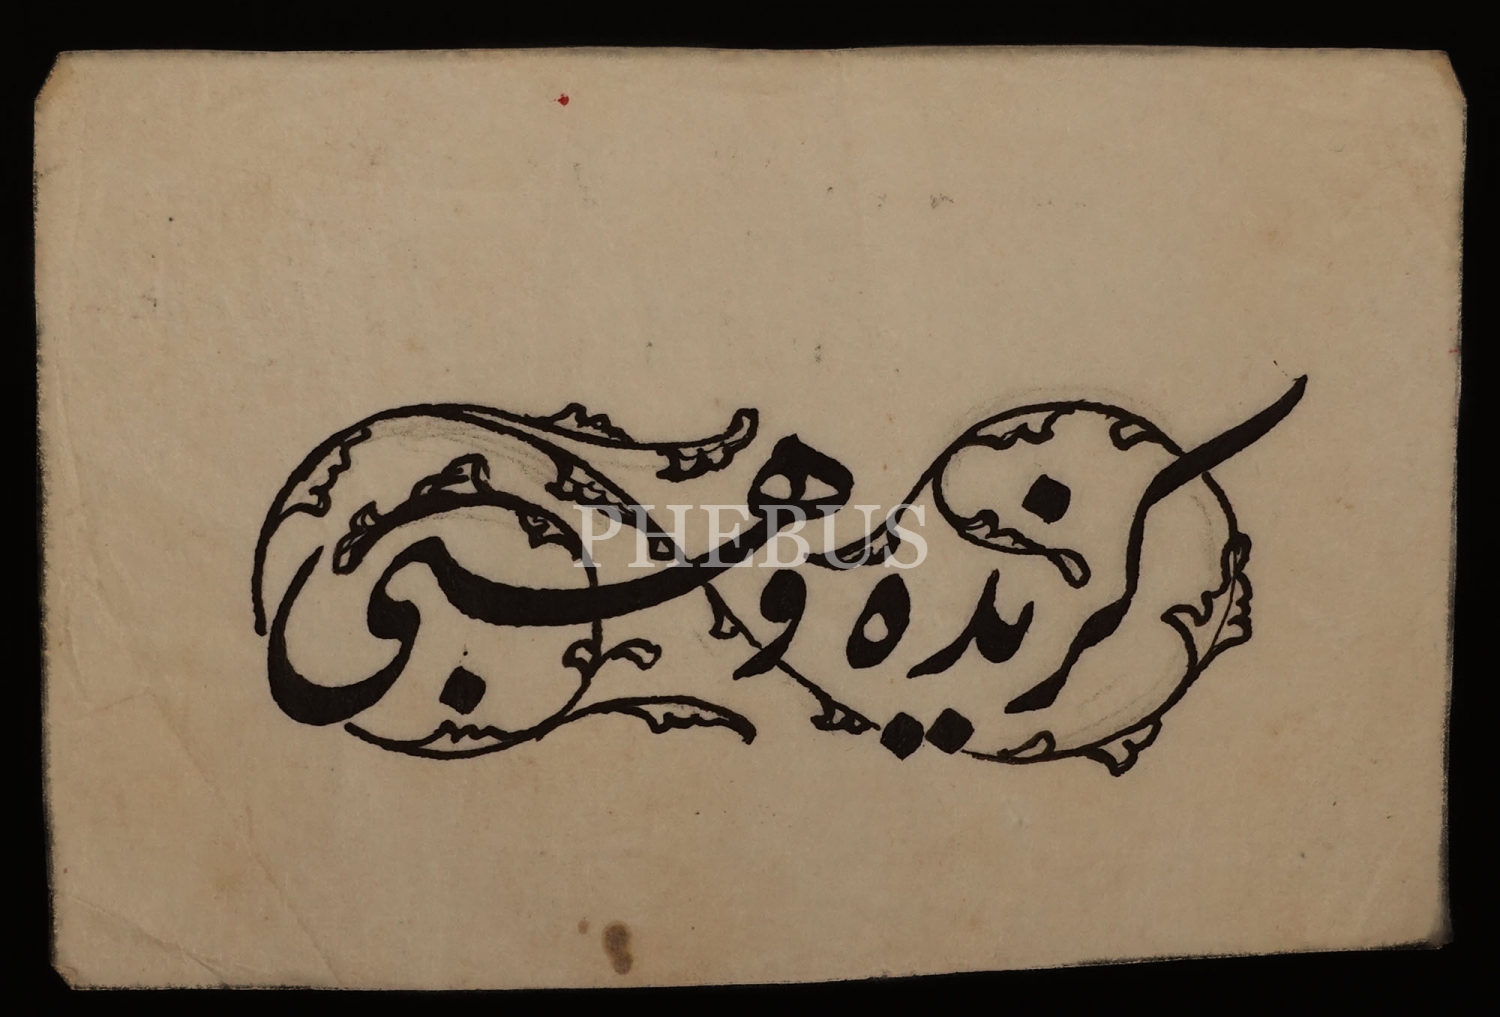 كزیده وهبی
PHEBUS